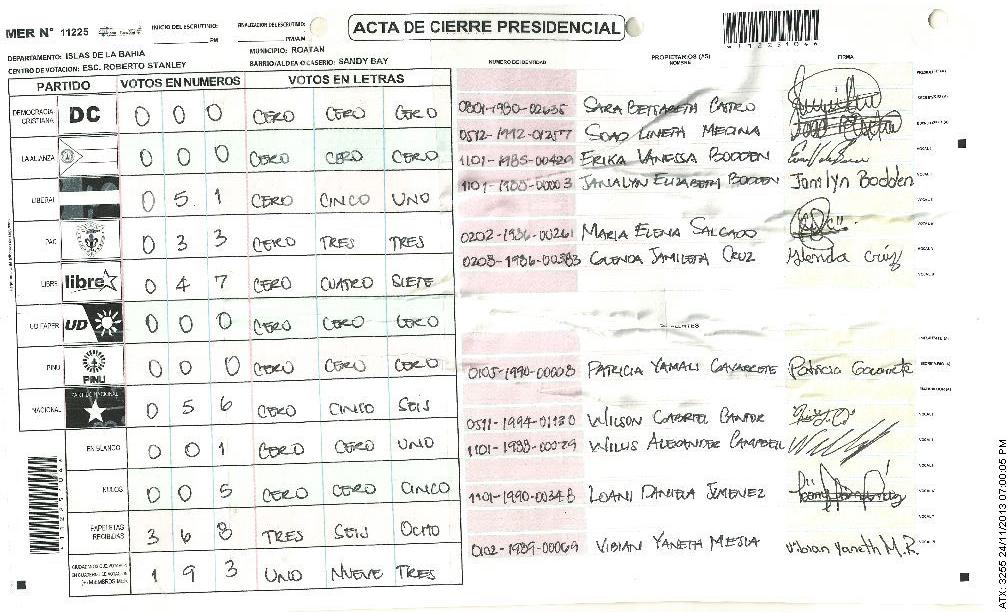 MER N° 11225
INICIO DEL ESCRUTINIO:
PM
FINALIZACION DEL ESCRUTINIO:
PM/AM
ACTA DE CIERRE PRESIDENCIAL
DEPARTAMENTO: ISLAS DE LA BAHIA
MUNICIPIO: ROATAN
CENTRO DE VOTACION: ESC. ROBERTO STANLEY
BARRIO/ALDEA O CASERIO: SANDY BAY
NUMERO DE IDENTIDAD
PROPIETARIOS (AS)
NOMBRE
FIRMA
PARTIDO VOTOS EN NUMEROS VOTOS EN LETRAS
DEMOCRACIA CRISTIANA DC 0 0 0 CERO CERO CERO
LA ALIANZA 0 0 0 CERO CERO CERO
LIBERAL 0 5 1 CERO CINCO UNO
PAC 0 3 3 CERO TRES TRES
LIBRE libre 0 4 7 CERO CUATRO SIETE
UD FAPER UD 0 0 0 CERO CERO CERO
PINU PINU 0 0 0 CERO CERO CERO
NACIONAL 0 5 6 CERO CINCO SEIS
EN BLANCO 0 0 1 CERO CERO UNO
NULOS 0 0 5 CERO CERO CINCO
PAPELETAS RECIBIDAS 3 6 8 TRES SEIS OCHO
1 9 3 UNO NUEVE TRES
0801-1980-02635 SARA BETSABETH CASTRO
0512-1992-01257 SOAD LINETH MEDINA
1101-1985-00429 ERIKA VANESSA BODDEN
1101-1988-00003 JANALYN ELIZABETH BODDEN Janalyn Bodden
0202-1986-00261 MARIA ELENA SALGADO
0208-1986-00383 GLENDA JAMILETH CRUZ Glenda Cruz
0105-1990-00008 PATRICIA YAMALI GAVARRETE Patricia Gavarrete
0511-1994-01130 WILSON GABRIEL CANTOR
1101-1988-00029 WILLIS ALEXANDER CAMPBELL
1101-1990-00348 LOANI DANIELA JIMENEZ
0102-1989-00069 VIBIAN YANETH MEJIA Vibian Yaneth M.R.
ATX: 3255 24/11/2013 07:00:05 PM